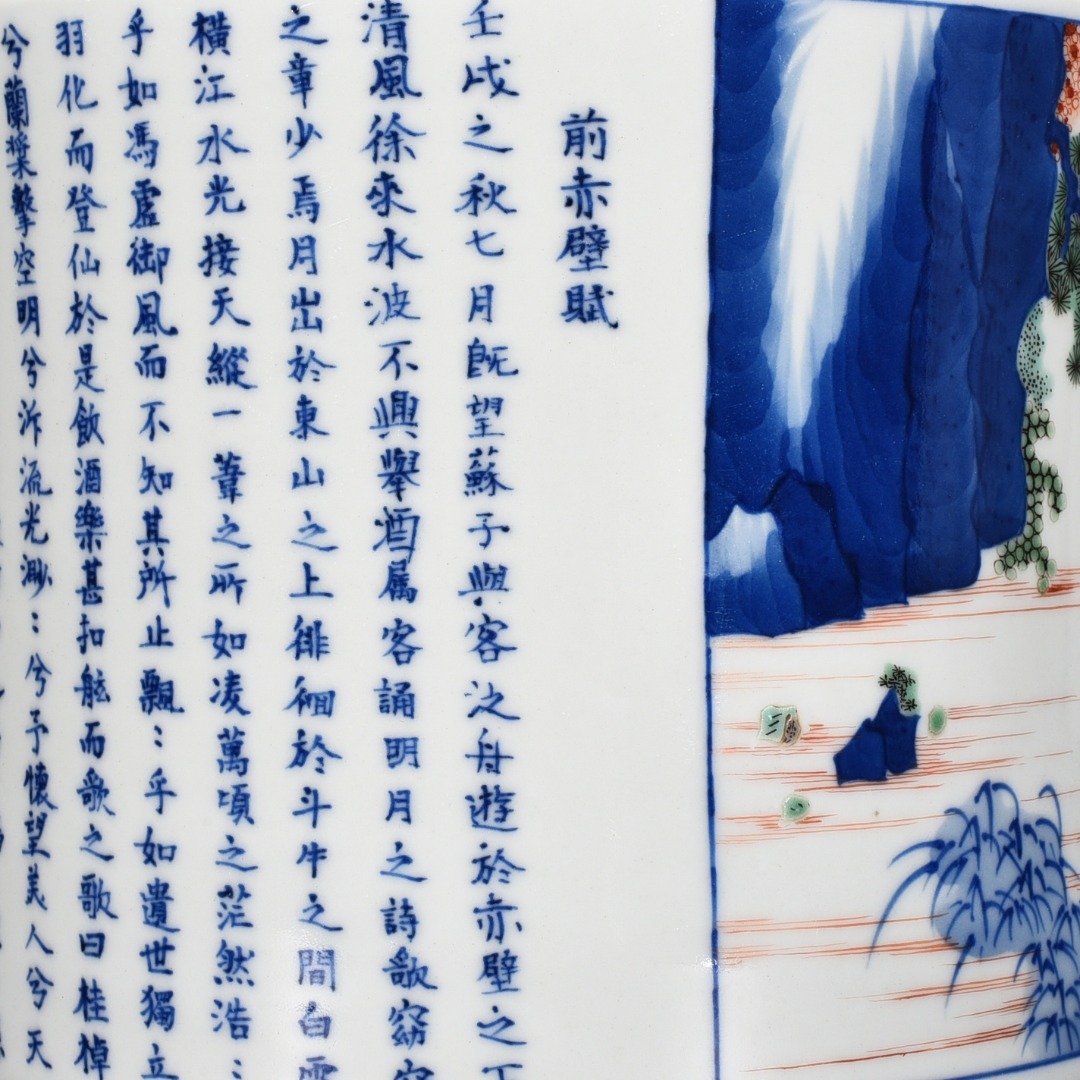 前赤壁賦
壬戌之秋七月既望蘇子與客泛舟遊於赤壁之下
清風徐來水波不興舉酒属客誦明月之詩歌窈窕
之章少焉月出於東山之上徘徊於斗牛之間白露
橫江水光接天縱一葦之所如凌萬頃之茫然浩:
乎如馮虛御風而不知其所止飄:乎如遺世獨立
羽化而登仙於是飲酒樂甚扣舷而歌之歌曰桂棹
兮蘭槳擊空明兮泝流光渺:兮予懷望美人兮天